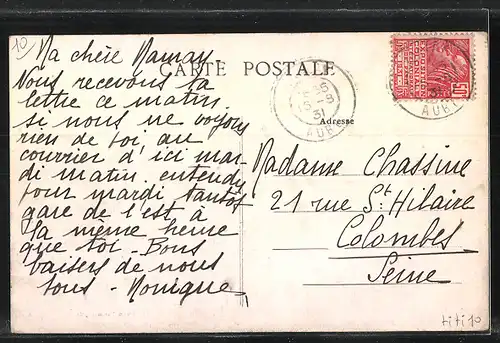 10
Ma chère Maman
Nous recevons ta
lettre ce matin.
si nous ne voyons
rien de toi au
courrier d'ici mar-
di matin. entendu
pour mardi tantôt
gare de l'est à
la même heure
que toi - Bons
baisers de nous
tous - Monique
CARTE POSTALE
Adresse
15-3
31
AUBE
AUBE
Madame Chassine
21 rue St Hilaire
Colombes
Seine
titi10